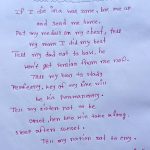 If I die in a war zone, box me up
and send me home.
Put my medals on my chest, tell
my mom I did my best
Tell my dad not to bow, he
won't get tension from me now.
Tell my bro to study
perfectly, key of my bike will
be his permanently.
Tell my sister not to be
upset, her bro will take a long
sleep after sunset.
Tell my nation not to cry.